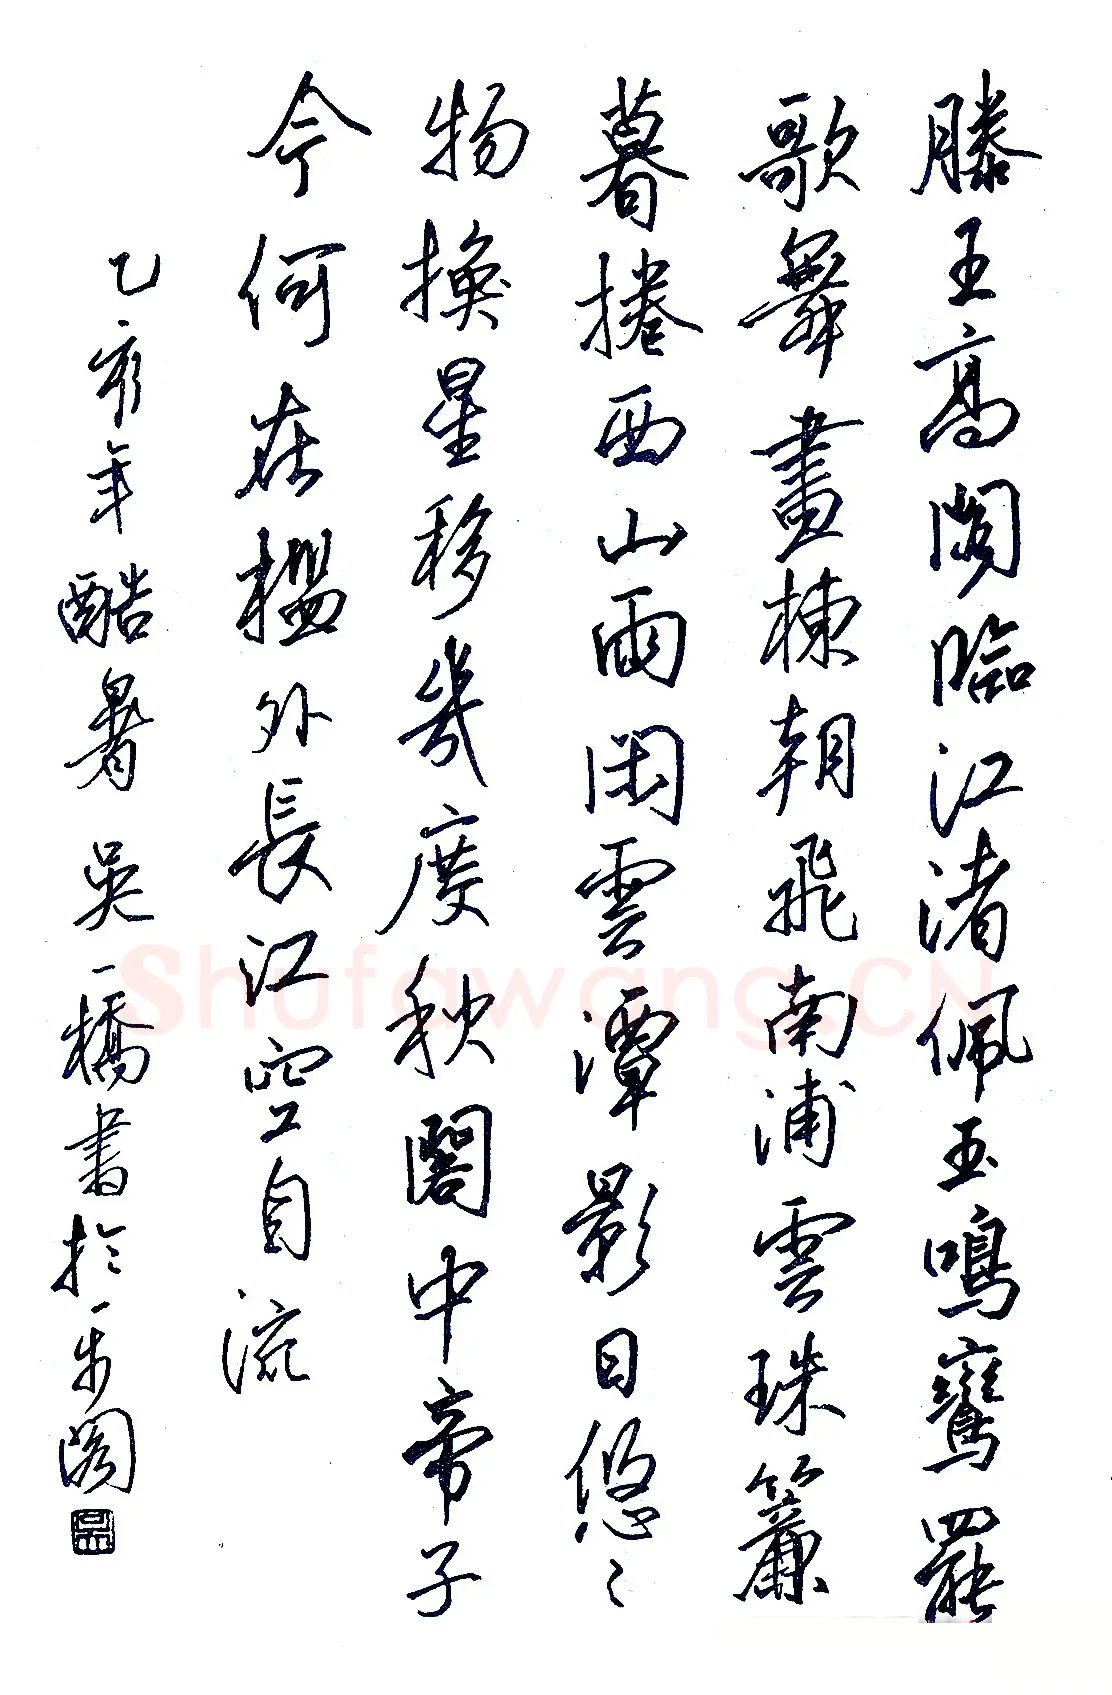 滕王高閣臨江渚佩玉鳴鸞罷
歌舞畫棟朝飛南浦雲珠簾
暮捲西山雨閑雲潭影日悠〻
物換星移幾度秋閣中帝子
今何在檻外長江空自流
乙亥年酷暑吳一橋書於一步閣
Shufawang.CN